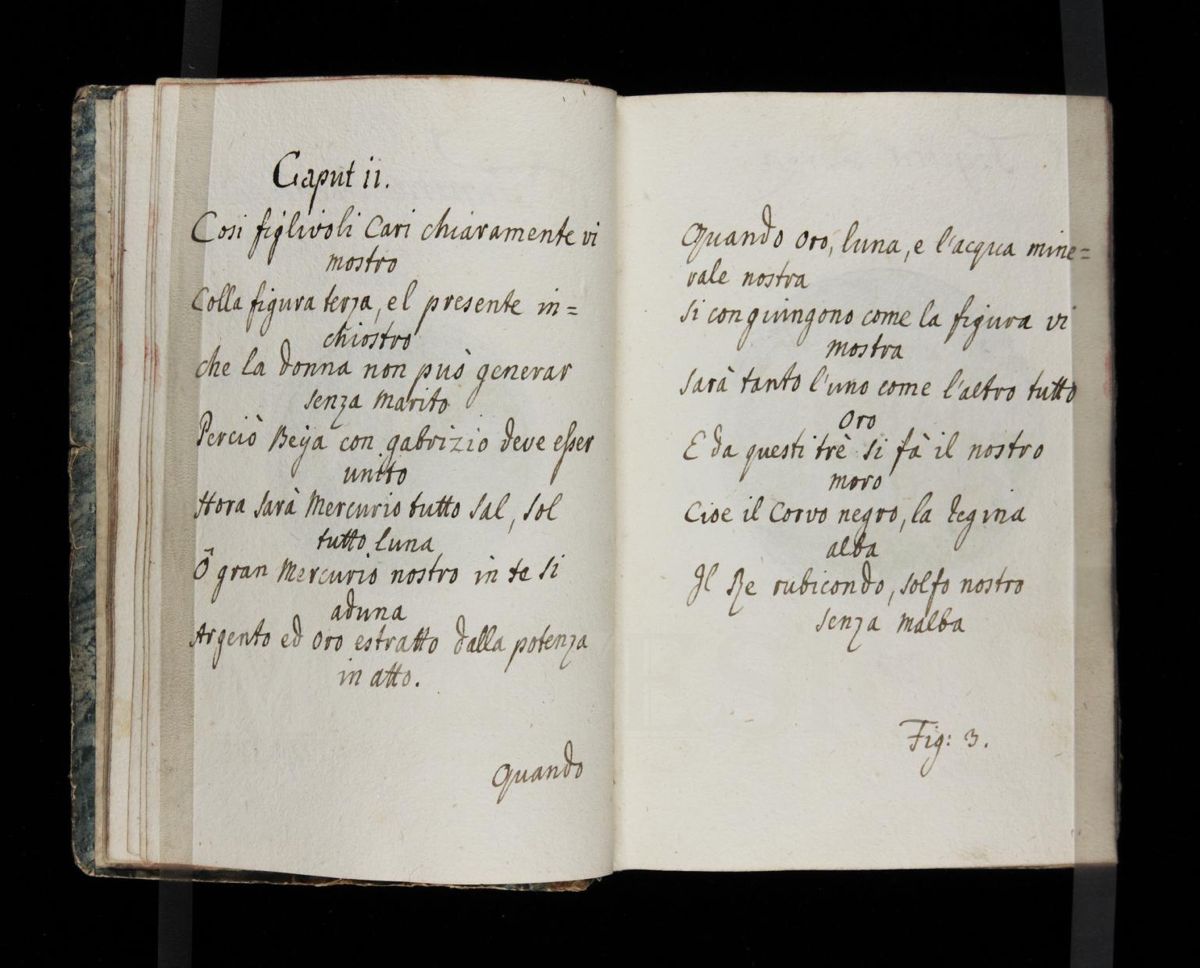 Caput ii.
Cosi figlivoli Cari chiaramente vi
mostro
Colla figura terza, el presente in=
chiostro
che la donna non può generar
senza marito
Perciò Beya con gabrizio deve esser
unito
Hora sarà Mercurio tutto Sal, Sol
tutto luna
Ô gran Mercurio nostro in te si
aduna
Argento ed oro estratto dalla potenza
in atto.
Quando
Quando oro, luna, e l'acqua mine=
rale nostra
Si congiungono come la figura vi
mostra
Sarà tanto l'uno come l'altro tutto
oro
E da questi trè si fà il nostro
moro
Cioe il Corvo negro, la Regina
alba
Il Re rubicondo, solfo nostro
senza malba
Fig: 3.